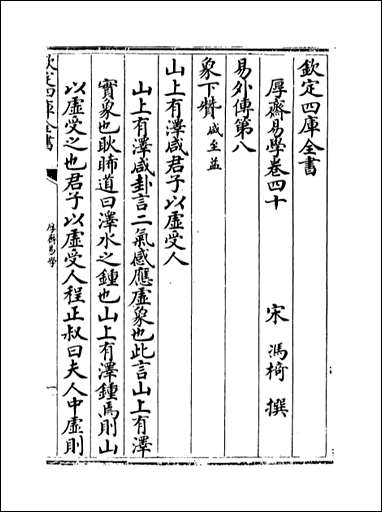 欽定四庫全書
厚齋易學卷四十
宋 馮椅 撰
易外傳第八
象下贊 咸至益
山上有澤咸君子以虛受人
山上有澤咸卦言二氣感應虛象也此言山上有澤
實象也耿睎道曰澤水之鍾也山上有澤鍾焉則山
以虛受之也君子以虛受人程正叔曰夫人中虛則
欽定四庫全書
厚齋易學
一